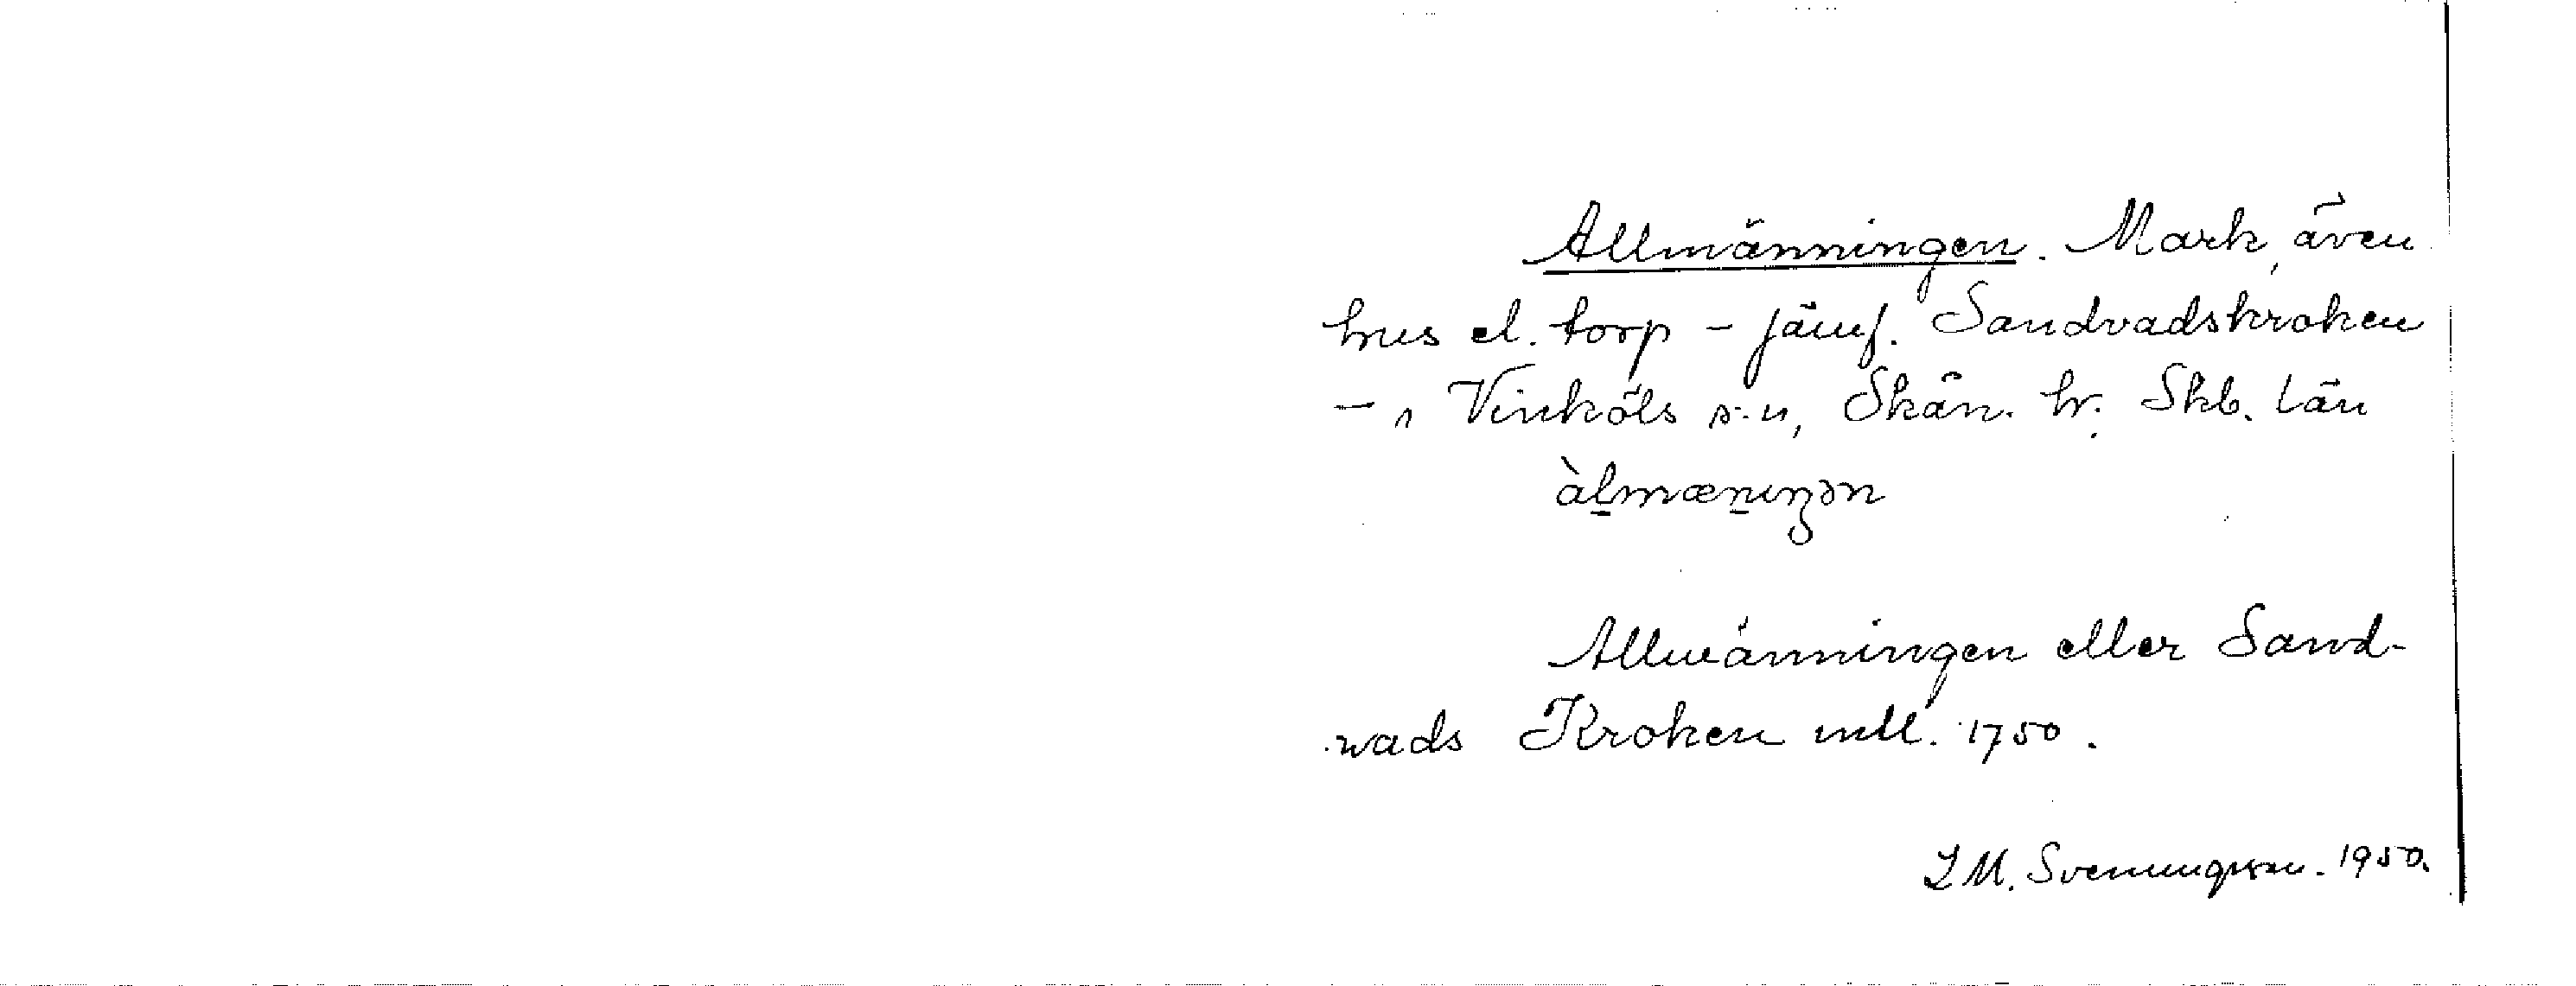 Allmänningen. Mark, även
hus el. torp - jämf. Sandvadskroken
- i Vinköls s:n, Skån. hr. Skb. län
àl̠mæn̠ıŋən
Allmänningen eller Sand-
wads Kroken mtl. 1750.
I M. Svenungsson. 1950.